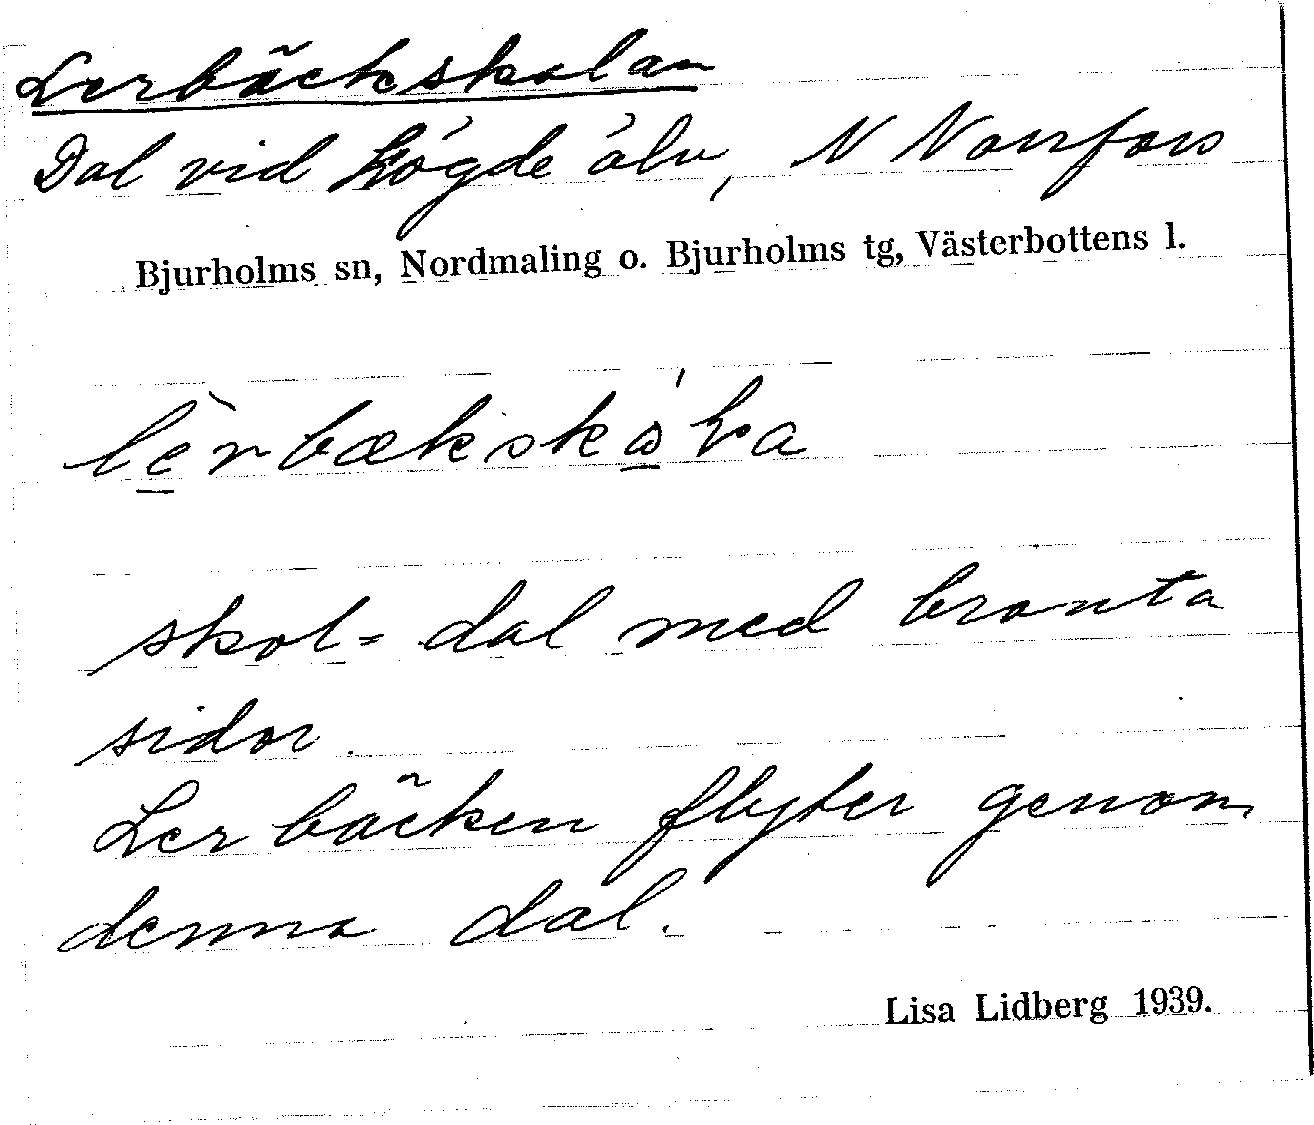 Lerbäckskolan
Dal vid Lögde älv, N Norrfors
Bjurholms sn, Nordmaling o. Bjurholms tg, Västerbottens l.
skol = dal med branta
sidor.
Lerbäcken flyter genom
denna dal.
Lisa Lidberg 1939.